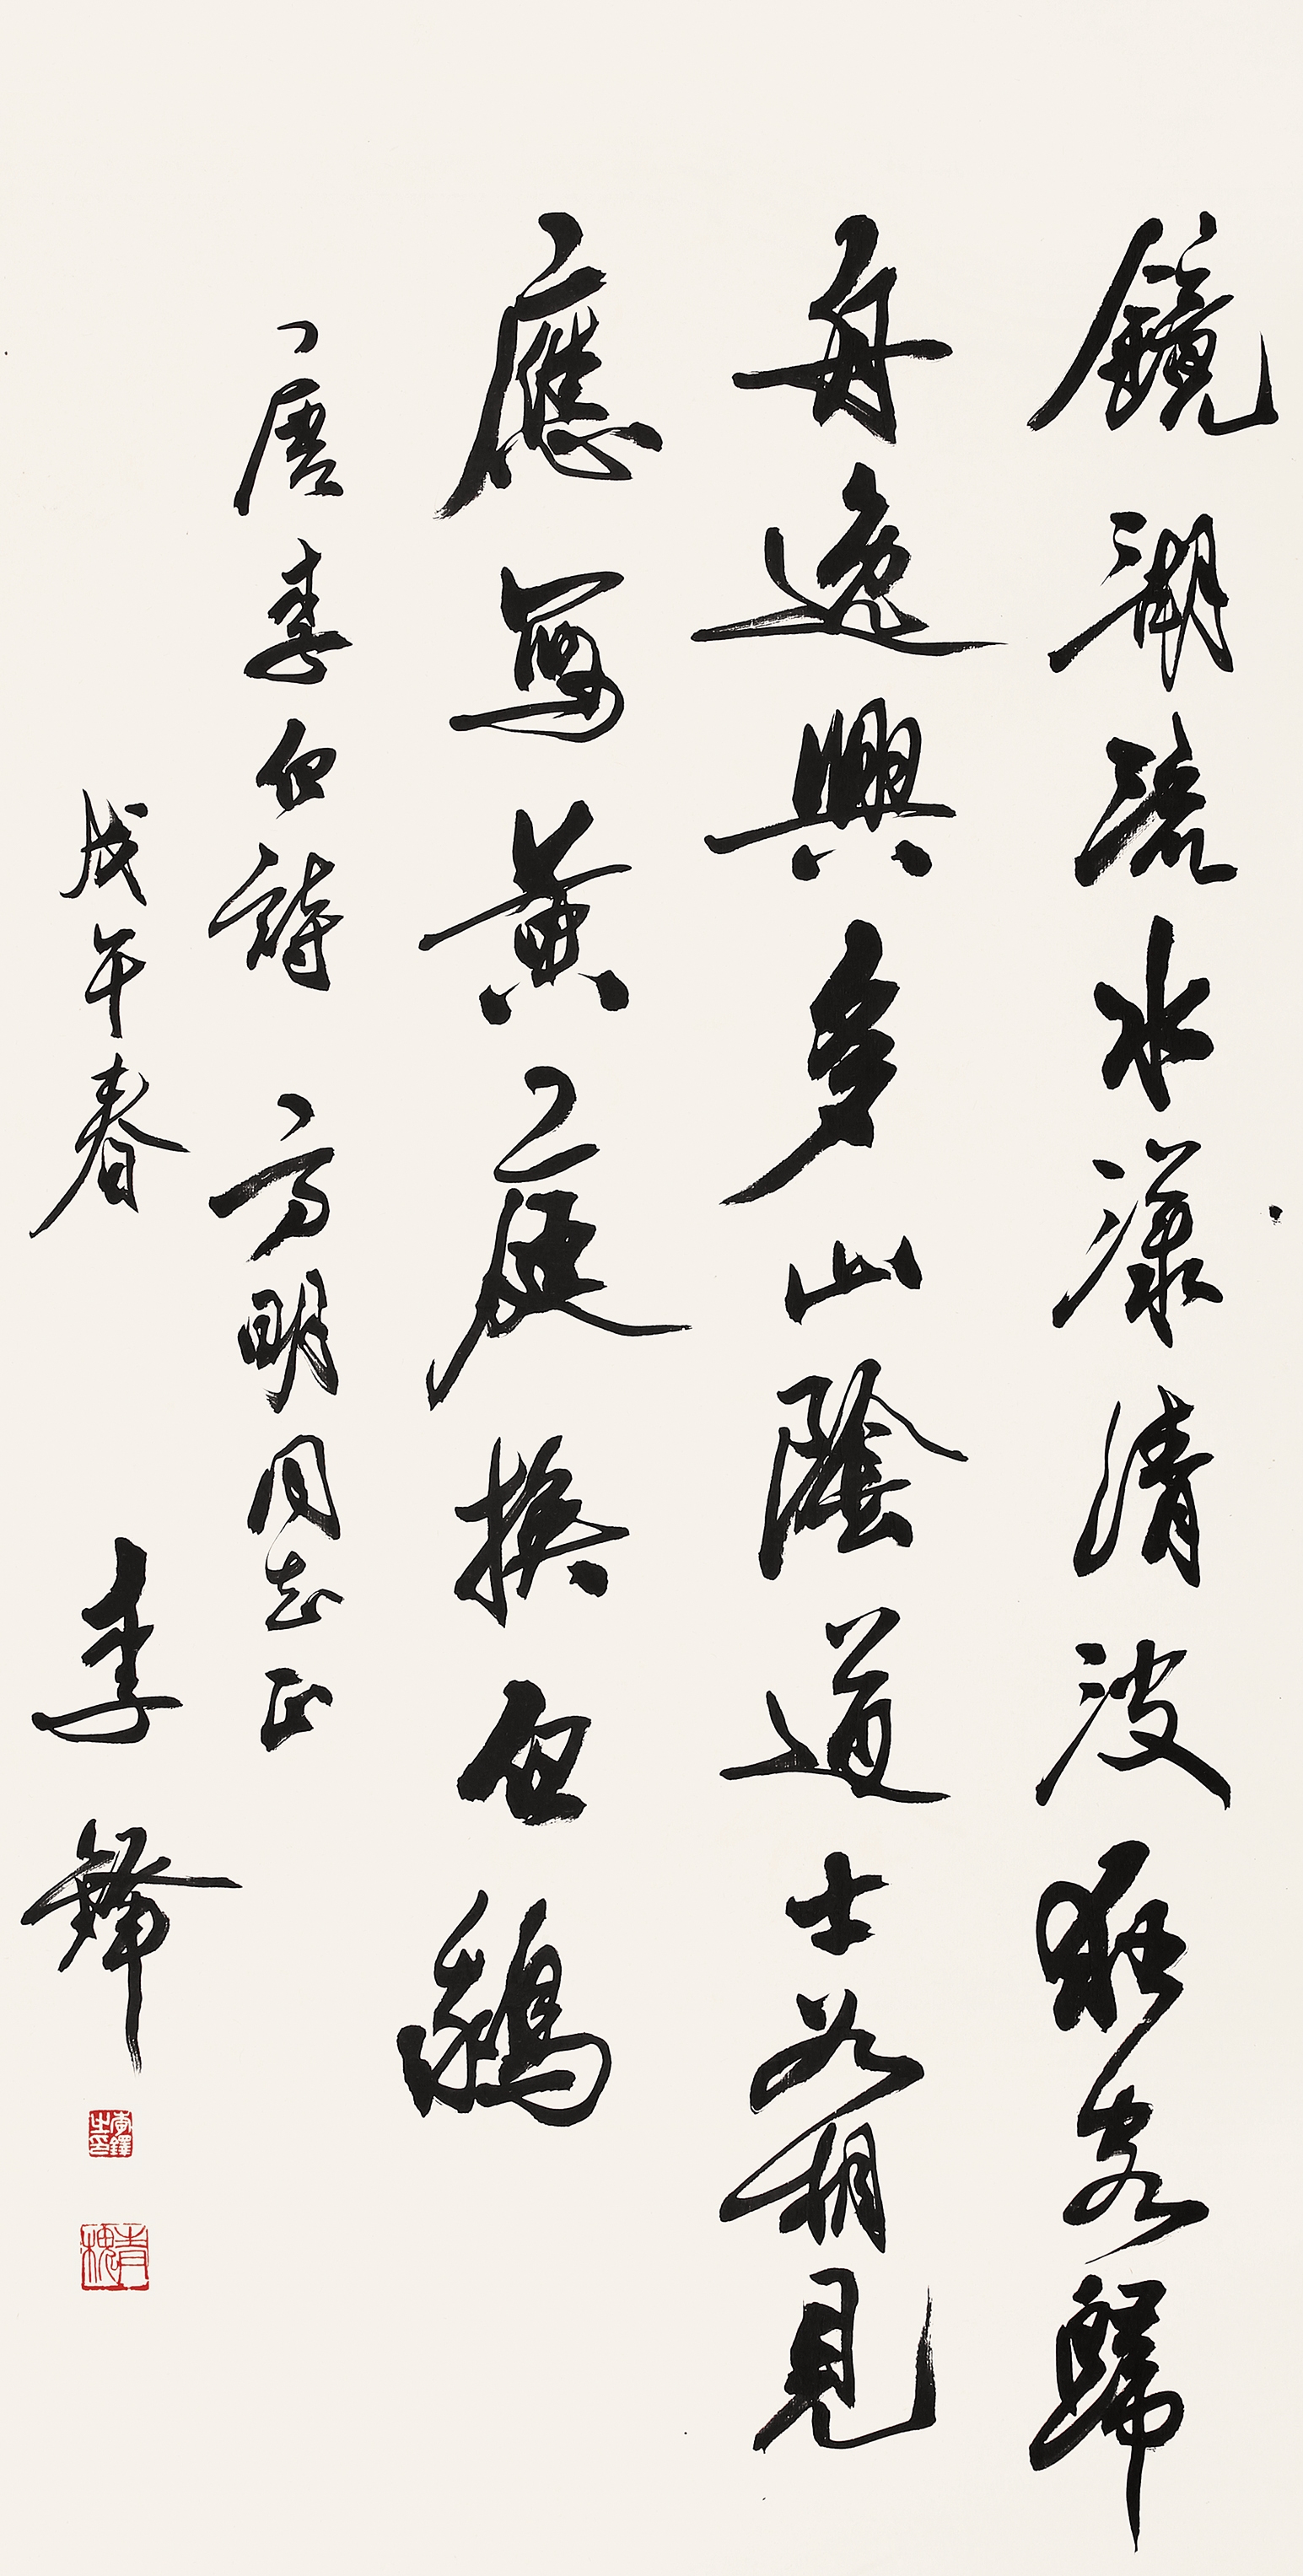 鏡湖流水漾清波狂客歸
舟逸興多山陰道士如相見
應寫黃庭換白鵝
唐李白詩 方明同志正
戊午春 李鐸
李鐸之印
青槐